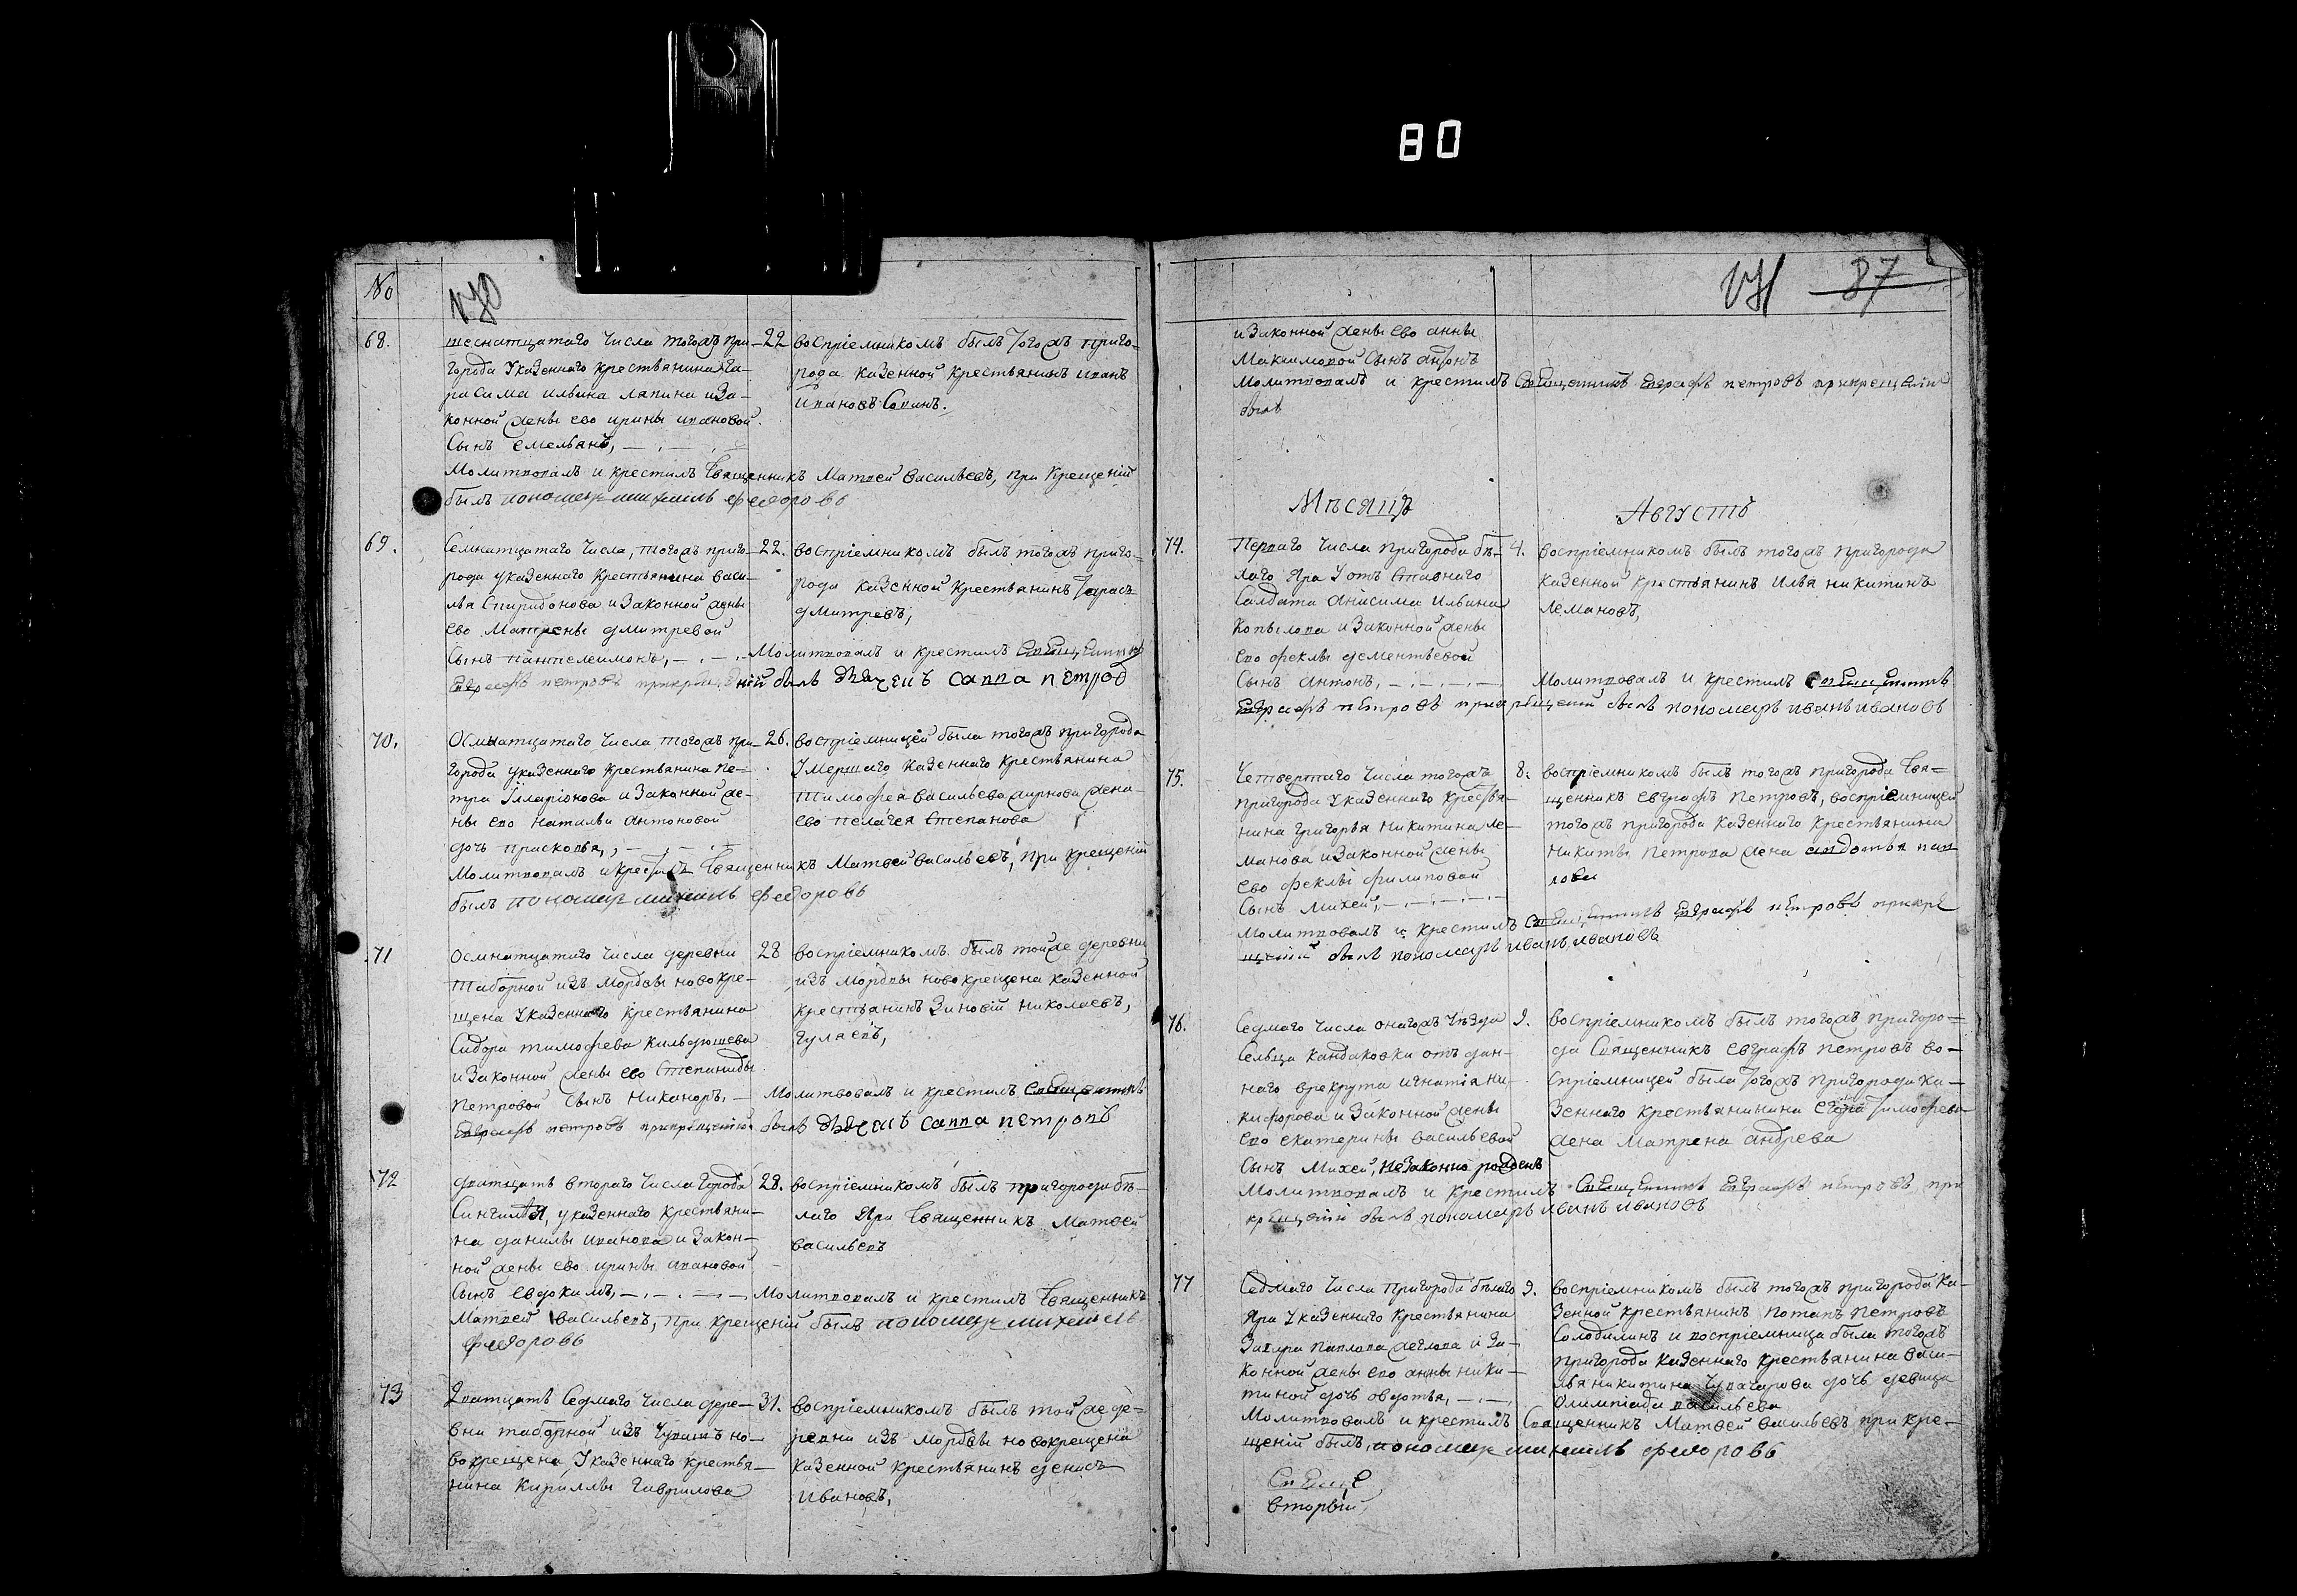 80
No
170
68.
шеснатцатаго числа тогожъ при- 22
города Указеннаго крестьянина Га-
расима Ильина Лапина иза-
конной жены ево ирины ивановой
Сынъ емельянъ,
воспріемникомъ былъ тогожъ приго-
рода казенной крестьянинъ иванъ
ивановъ Совинъ.
Молитвовалъ и крестилъ Священникъ Матвей васильевъ, при крещеніи
былъ пономарь михаилъ федоровъ
69.
Семнатцатаго числа, тогожъ приго- 22.
рода указеннаго крестьянина васи-
лья Спиридонова и законной жены
ево Матрены дмитревой
Сынъ пантелеимонъ,
воспріемникомъ былъ тогожъ приго-
рода казенной крестьянинъ Тарасъ
дмитревъ,
Молитвовалъ и крестилъ Священникъ
Евграфъ петровъ прикрещеній былъ дьячекъ савва петровъ
70.
Осмнатцатаго числа тогожъ при- 26.
города указеннаго крестьянина Пе-
тра Илларіонова и законной же-
ны ево натальи антоновой
дочь прасковья,
воспріемницей была тогожъ пригорода
Умершаго казеннаго крестьянина
Тимофея васильева жена
ево пелагея Степанова
Молитвовалъ и крестилъ Священникъ Матвей васильевъ, при крещеніи
былъ пономарь михаилъ федоровъ
71
Осмнатцатаго числа деревни 28
Таборной изъ Мордвы новокре-
щена указеннаго крестьянина
Сидора тимофева Кильдюшева
и законной жены ево Степаниды
Петровой Сынъ Никаноръ,
воспріемникомъ былъ тойже деревни
изъ мордвы новокрещена казенной
крестьянинъ Зиновій николаевъ,
гуляевъ,
Молитвовалъ и крестилъ Священникъ
Евграфъ петровъ прикрещеній былъ дьячекъ савва петровъ
72
дватцать втораго числа города 28.
Сингилѣя, указеннаго крестьяни-
на данилы иванова и закон-
ной жены ево ирины ивановой
Сынъ евдокимъ,
воспріемникомъ былъ пригорода бѣ-
лаго Яра Священникъ Матвей
васильевъ
Молитвовалъ и крестилъ Священникъ
Матвей васильевъ, при крещеній былъ пономарь михаилъ
федоровъ
73
Дватцать Седмаго числа дере- 31.
вни таборной изъ Чувашъ но-
вокрещена, Указеннаго крестья-
нина Кириллы Гаврилова
воспріемникомъ былъ тойже де-
ревни изъ мордвы новокрещена
казенной крестьянинъ денисъ
Ивановъ,
171 87
и Законной жены ево анны
Максимовой Сынъ антонъ
Молитвовалъ и крестилъ Священникъ Евграфъ петровъ прикрещеніи
былъ
Мѣсяцъ Августъ
74.
Перваго числа пригорода бѣ- 4.
лаго Яра У отъ Ставнаго
Салдата Анисима Ильина
Копылова и Законной жены
ево феклы дементьевой
Сынъ антонъ,
воспріемникомъ былъ тогожъ пригорода
казенной крестьянинъ Илья никитинъ
Лемановъ,
Молитвовалъ и крестилъ Священникъ
Евграфъ петровъ прикрещеній былъ пономарь иванъ ивановъ
75.
Четвертаго числа тогожъ 8.
пригорода Указеннаго крестья-
нина григорья никитина ле-
манова и Законной жены
ево феклы филиповой
Сынъ михей,
воспріемникомъ былъ тогожъ пригорода Свя-
щенникъ евграфъ Петровъ, воспріемницей
тогожъ пригорода казеннаго крестьянина
никиты Петрова жена авдотья пав
лова
Молитвовалъ и крестилъ Священникъ Евграфъ петровъ прикре
щеній былъ пономарь иванъ ивановъ
76.
Седмаго числа онагожъ Уѣзда 9.
Сельца кандаковки отъ дан-
наго врекрута игнатія ни-
кифорова и Законной жены
ево екатерины васильевой
Сынъ Михей, незаконно рожденъ
воспріемникомъ былъ тогожъ пригоро-
да Священникъ евграфъ петровъ во-
спріемницей была тогожъ пригорода ка-
зеннаго крестьянинина егора тимофева
жена матрена андрева
Молитвовалъ и крестилъ Священникъ Евграфъ петровъ при
крещеній былъ пономарь иванъ ивановъ
77
Седмаго числа пригорода бѣлаго 9.
Яра Указеннаго крестьянина
Захара павлова жеглова и За-
конной жены ево анны ники-
тиной дочь овдотья,
воспріемникомъ былъ тогожъ пригорода ка-
зенной крестьянинъ потапъ петровъ
Солодилинъ и воспріемница была тогожъ
пригорода казеннаго крестьянина васи-
лья никитина дочь девица
Олимпіада васильева
Молитвовалъ и крестилъ Священникъ Матвей васильевъ при кре-
щеній былъ пономарь михаилъ федоровъ
вторый